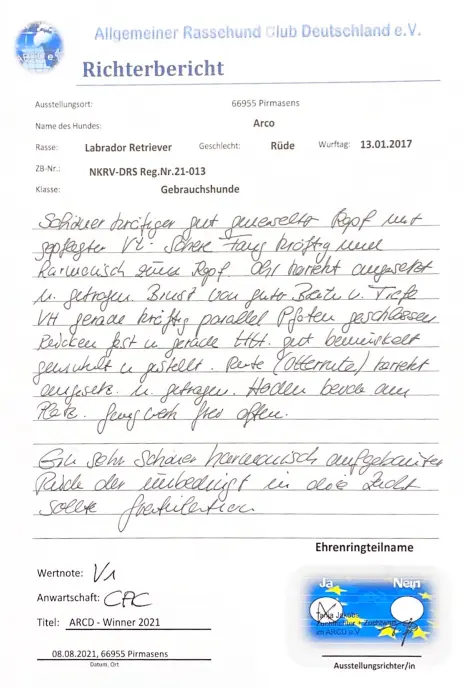 Allgemeiner Rassehund Club Deutschland e.V.
ARCD e.V.
Richterbericht
Ausstellungsort: 66955 Pirmasens
Name des Hundes: Arco
Rasse: Labrador Retriever Geschlecht: Rüde Wurftag: 13.01.2017
ZB-Nr.: NKRV-DRS Reg.Nr.21-013
Klasse: Gebrauchshunde
Schöner kräftiger gut gemeselter Kopf mit
gepflegter Vl. Schere Fang kräftig und
harmonisch zum Kopf. Ohr korrekt angesetzt
u. getragen. Brust von guter Breite u. Tiefe
VH gerade kräftig parallel Pfoten geschlossen
Rücken fest u gerade HH. gut bemuskelt
gewinkelt u gestellt. Rute (Otterrute) korrekt
angesetz. u. getragen. Hoden beide am
Platz. Gangwerk frei offen.
Ein sehr schöner harmonisch aufgebauter
Rüde der unbedingt in die Zucht
sollte Gratulation
Ehrenringteilname
Wertnote: V1
Anwartschaft: CAC
Titel: ARCD - Winner 2021
Ja Nein
Tanja Jakobs
Zuchtrichter + Zuchtwart
im ARCD e.V
08.08.2021, 66955 Pirmasens
Datum, Ort
Ausstellungsrichter/in